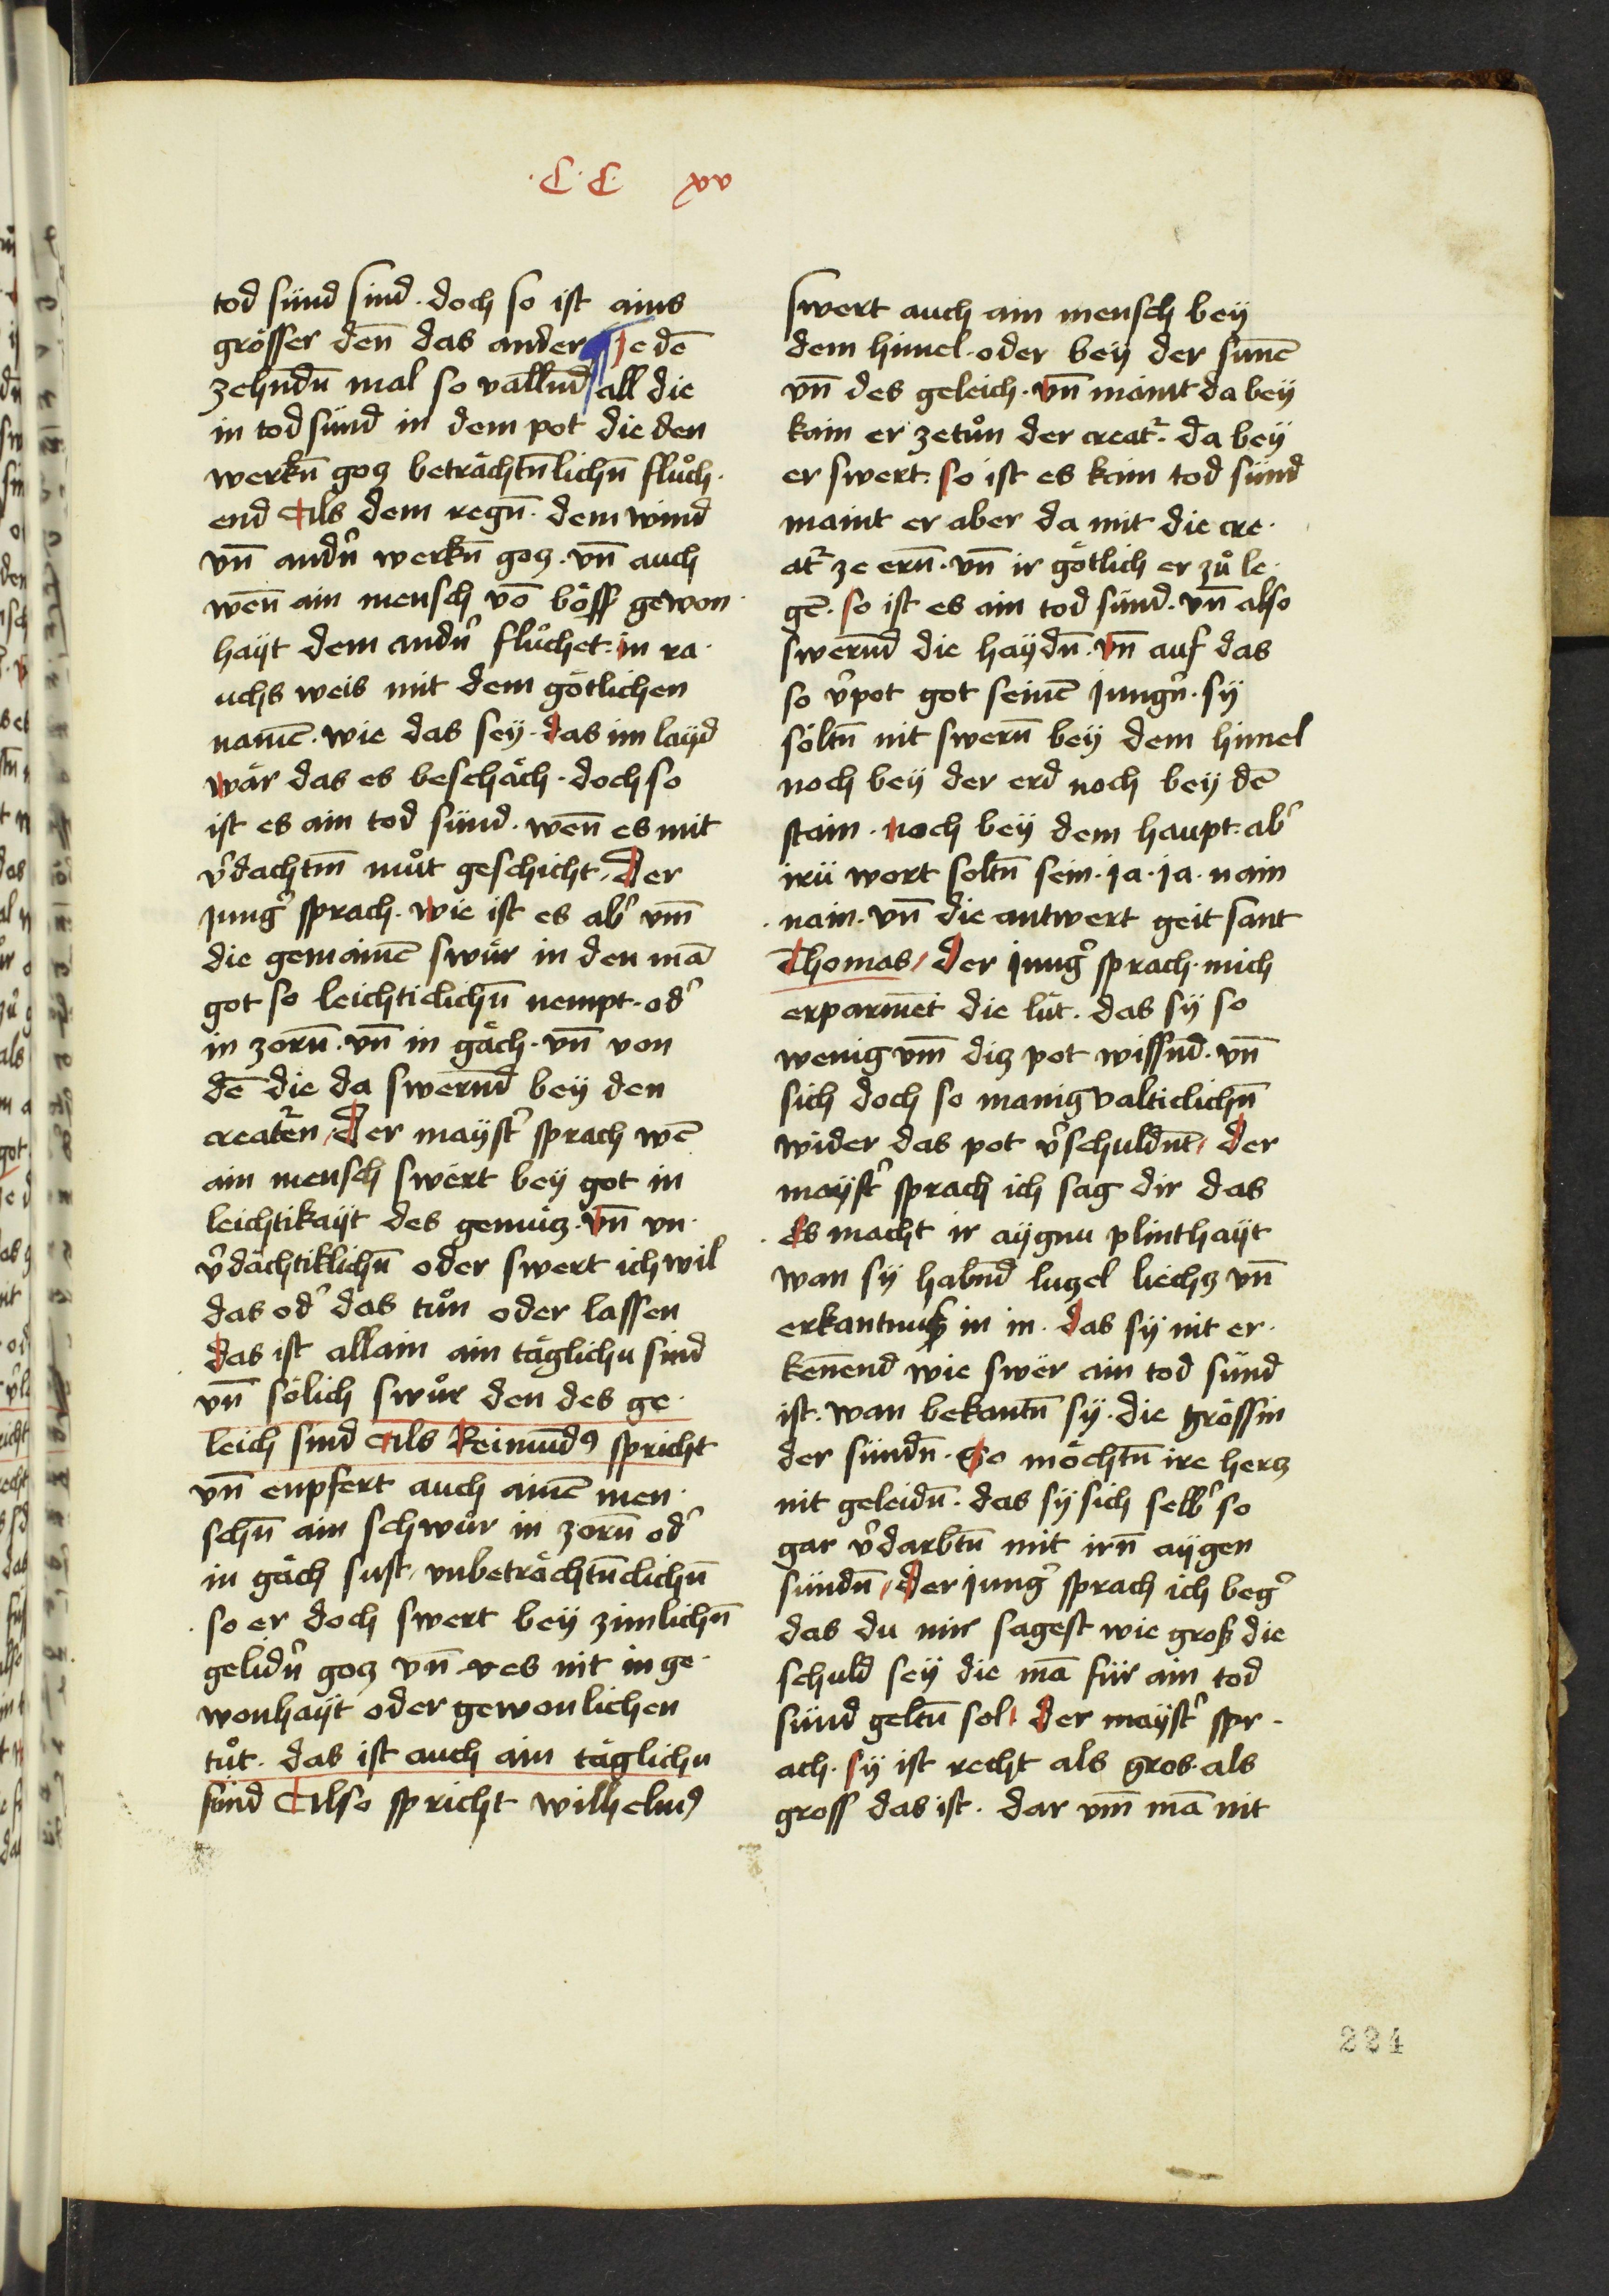 ·C·C· xv
tod sünd sind · doch so ist ains
grösser den̄ das ander ¶ Je dē
zehndn̄ mal so vallnd all die
in tod sünd in dem pot die den
werkn̄ goz beträchtn̄lichn̄ flůch·
end Als dem regn̄ · dem wind
vn̄ andn̉ werkn̄ goz · vn̄ auch
wen̄ ain mensch vō böss gewon·
hayt dem andn̉ flůchet · in ra·
uchs weis mit dem götlichen
namē · wie das sey · das im layd
wär das es beschäch · doch so
ist es ain tod sünd · wen̄ es mit
v̉dachtm̄ můt geschicht / Der
Jung̉ sprach · wie ist es ab̉ vm̄
die gemainē swůr in den mā
got so leichticlichn̄ nempt · od̉
in zorn̄ · vn̄ in gäch · vn̄ von
dē die da swernd bey den
creat͛en / Der mayst̉ sprach wē
ain mensch swert bey got in
leichtikayt des gemüz · vn̄ vn·
v̉dächtiklichn̄ oder swert ich wil
das od̉ das tůn oder lassen
das ist allain ain täglichu sünd
vn̄ sölich swůr den des ge·
leich sind Als Reimūdꝰ spricht
vn̄ enpfert auch ainē men·
schn̄ ain schwůr in zorn̄ od̉
in gäch sust / vnbeträchtn̄clichn̄
so er doch swert bey zimlichn̄
gelidn̉ goz vn̄ es nit in ge·
wonhayt oder gewonlichen
tůt · das ist auch ain täglichu
sünd Also spricht wilhelmꝰ
swert auch ain mensch bey
dem himel · oder bey der sunnē
vn̄ des geleich · vn̄ maint da bey
kain er zetůn der creat͛ · da bey
er swert · so ist es kain tod sünd
maint er aber da mit die cre·
at͛ ze ern̄ · vn̄ ir götlich er zů le·
gē · so ist es ain tod sünd · vn̄ also
swernd die haydn̄ · vn̄ auf das
so v̉pot got seinē Jungn̉ · sy
söltn̄ nit swern̄ bey dem himel
noch bey der erd noch bey dē
stain · noch bey dem haupt · ab̉
irü wort soltn̄ sein · ja · ja · nain
nain · vn̄ die antwert geit sant
Thomas / Der Jung̉ sprach · mich
erparmet die lüt · das sy so
wenig vm̄ diz pot wissnd · vn̄
sich doch so manigvalticlichn̄
wider das pot v̉schuldnt / Der
mayst̉ sprach ich sag dir das
es macht ir aygnu plinthayt
wan sy habnd luzel liechz vn̄
erkantnuß in in · das sy nit er·
kennend wie swër ain tod sünd
ist · wan bekantn̄ sy · die grössin
der sündn̄ · So möchtn̄ ire herz
nit geleidn̄ · das sy sich selb̉ so
gar v̉darbtn̄ mit irn̄ aygen
sündn̄ / Der jung̉ sprach ich beg̉
das du mir sagest wie groß die
schuld sey die mā für ain tod
sünd geltn̄ sol / der mayst̉ spr·
ach · sy ist recht als gros · als
gross das ist · dar vm̄ mā nit
224